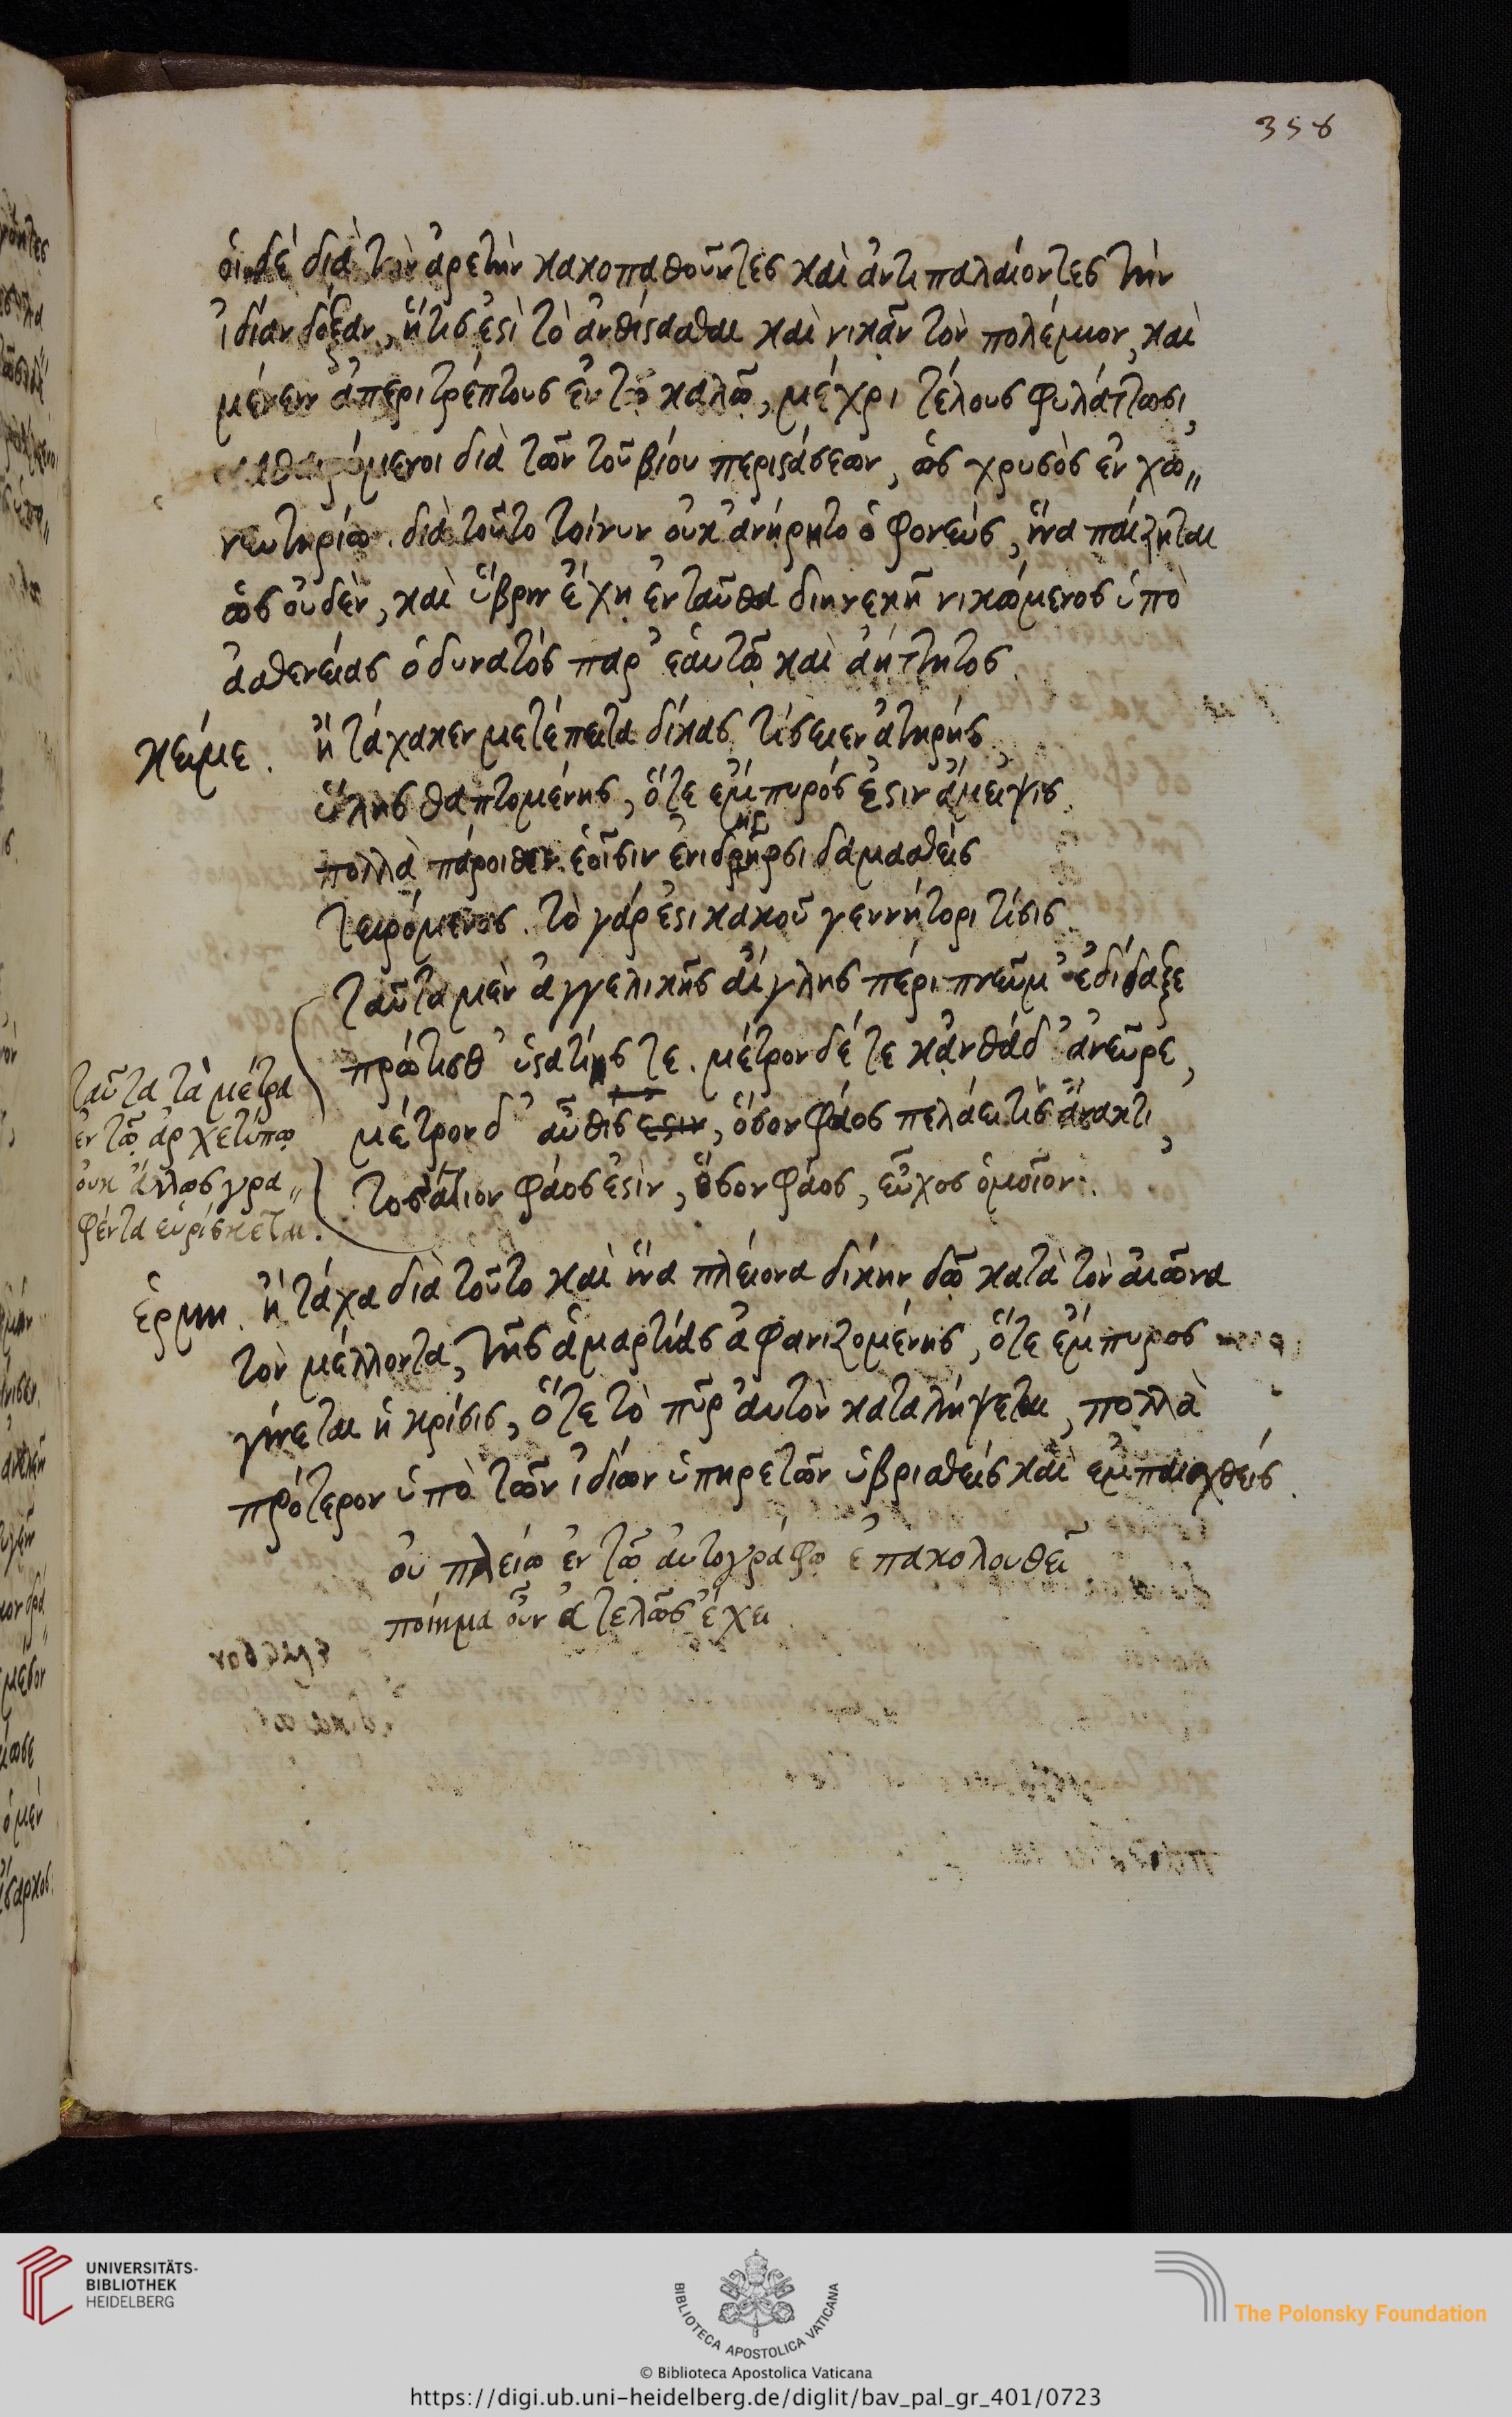 358
οἱ δὲ διὰ τὴν ἀρετὴν κακοπαθοῦντες καὶ ἀντιπαλαίοντες τὴν
ἰδίαν δόξαν, ἥτις ἐστὶ τὸ ἀνθίστασθαι καὶ νικᾶν τὸν πολέμιον, καὶ
μένειν ἀπεριτρέπτους ἐν τῷ καλῷ, μέχρι τέλους φυλάττωσι,
καθαιρόμενοι διὰ τῶν τοῦ βίου περιστάσεων, ὡς χρυσὸς ἐν χω„
νευτηρίῳ. διὰ τοῦτο τοίνυν οὐκ ἀνήρητο ὁ φονεύς, ἵνα παίζηται
ὡς οὐδὲν, καὶ ὕβριν ἔχῃ ἐνταῦθα διηνεκῆ νικώμενος ὑπὸ
ἀσθενείας ὁ δυνατὸς παρ' ἑαυτῷ καὶ ἀήττητος.
κείμε. ἢ τάχα κεν μετέπειτα δίκας τίσειεν ἀτηρῆς,
ὕλης θαπτομένης, ὅτε ἐμπυρός ἐστιν ἄμειψις.
πολλὰ πάροιθεν ἑοῖσιν ἐνὶ δρηστῆρσι δαμασθεὶς
τειρόμενος. τὸ γάρ ἐστι κακοῦ γεννήτορι τίσις.
ταῦτα μὲν ἀγγελικῆς αἴγλης πέρι πνεῦμ' ἐδίδαξε
πρώτισθ' ὑστατίης τε. μέτρον δέ τε κἀνθάδ' ἀνεῦρε,
μέτρον δ' αὖθις ἐστιν, ὅσον φάος πελάει τις ἄνακτι,
τοσσάτιον φάος ἐστὶν, ὅσον φάος, εὖχος ὁμοῖον.
ταῦτα τὰ μέτρα
ἐν τῷ ἀρχετύπῳ
οὐκ ἄλλως γρα„
φέντα εὑρίσκεται.
ἑρμη. ἢ τάχα διὰ τοῦτο καὶ ἵνα πλείονα δίκην δῷ κατὰ τὸν αἰῶνα
τὸν μέλλοντα, τῆς ἁμαρτίας ἀφανιζομένης, ὅτε ἐμπυρος
γίνεται ἡ κρίσις, ὅτε τὸ πῦρ αὐτὸν καταλήψεται, πολλὰ
πρότερον ὑπὸ τῶν ἰδίων ὑπηρετῶν ὑβρισθεὶς καὶ ἐμπαιχθείς.
οὐ πλείω ἐν τῷ αὐτογράφῳ ἐπακολουθεῖ
ποίημα οὖν ἀτελῶς ἔχει.
UNIVERSITÄTS-
BIBLIOTHEK
HEIDELBERG
BIBLIOTECA APOSTOLICA VATICANA
© Biblioteca Apostolica Vaticana
The Polonsky Foundation
https://digi.ub.uni-heidelberg.de/diglit/bav_pal_gr_401/0723